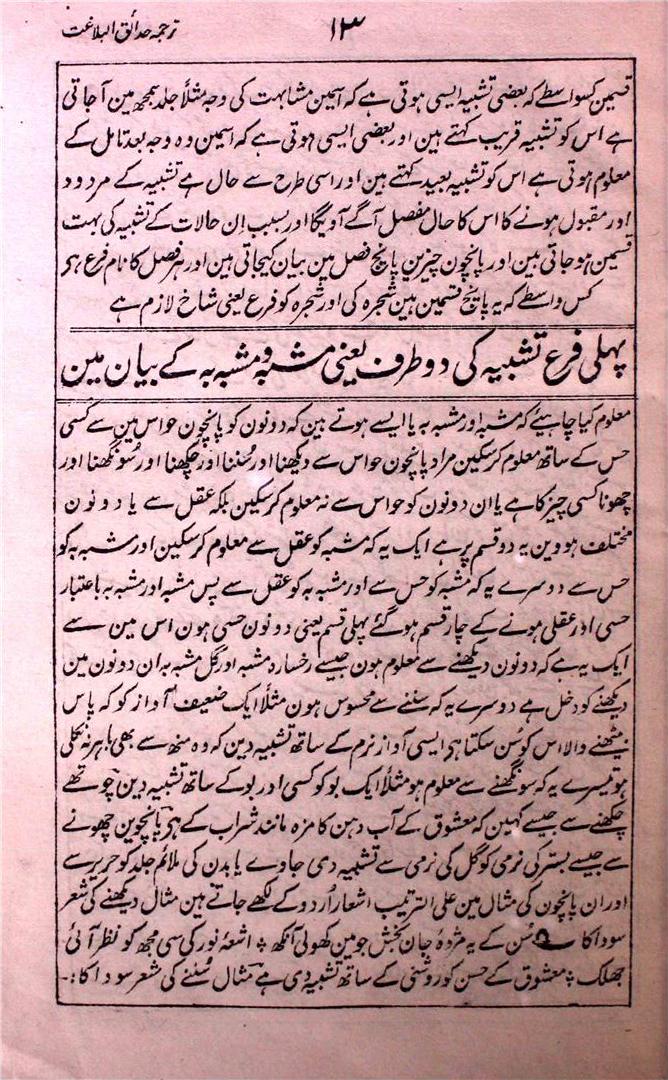 ترجمہ حدائق البلاغت
۱۳
قسمین کسواسطے کہ بعضی تشبیہ ایسی ہوتی ہے کہ اسمین مشابہت کی وجہ مثلاً جلد سمجھ مین آجاتی
ہے اس کو تشبیہ قریب کہتے ہین اور بعضی ایسی ہوتی ہے کہ اسمین وہ وجہ بعد تامل کے
معلوم ہوتی ہے اس کو تشبیہ بعید کہتے ہین اور اسی طرح سے حال ہے تشبیہ کے مردود
اور مقبول ہونے کا اس کا حال مفصل آگے آویگا اور بسبب ان حالات کے تشبیہ کی بہت
قسمین ہو جاتی ہین اور پانچون چیزین پانچ فصل مین بیان کیجاتی ہین اور ہر فصل کا نام فرع ہی
کس واسطے کہ یہ پانچ قسمین ہین شجرہ کی اور شجرہ کو فرع یعنی شاخ لازم ہے
پہلی فرع تشبیہ کی دو طرف یعنی مشبہ و مشبہ بہ کے بیان مین
معلوم کیا چاہیئے کہ مشبہ اور مشبہ بہ یا ایسے ہوتے ہین کہ دونون کو پانچون حواس مین سے کسی
حس کے ساتھ معلوم کر سکین مراد پانچون حواس سے دیکھنا اور سُننا اور چکھنا اور سُونگھنا اور
چھونا کسی چیز کا ہے یا ان دونون کو حواس سے نہ معلوم کر سکین بلکہ عقل سے یا دونون
مختلف ہووین یہ دو قسم پر ہے ایک یہ کہ مشبہ کو عقل سے معلوم کر سکین اور مشبہ بہ کو
حس سے دوسرے یہ کہ مشبہ کو حس سے اور مشبہ بہ کو عقل سے پس مشبہ اور مشبہ بہ باعتبار
حسی اور عقلی ہونے کے چار قسم ہو گئے پہلی قسم یعنی دونون حسی ہون اس مین سے
ایک یہ ہے کہ دونون دیکھنے سے معلوم ہون جیسے رخسارہ مشبہ اور گل مشبہ بہ ان دونون مین
دیکھنے کو دخل ہے دوسرے یہ کہ سننے سے محسوس ہون مثلاً ایک ضعیف آواز کو کہ پاس
بیٹھنے والا اس کو سُن سکتا ہی ایسی آواز نرم کے ساتھ تشبیہ دین کہ وہ منھ سے بھی باہر نہ نکلی
ہو تیسرے یہ کہ سونگھنے سے معلوم ہو مثلاً ایک بو کو کسی اور بو کے ساتھ تشبیہ دین چوتھے
چکھنے سے جیسے کہین کہ معشوق کے آب دہن کا مزہ مانند شراب کے ہی پانچوین چھونے
سے جیسے بستر کی نرمی کو گل کی نرمی سے تشبیہ دی جاوے یا بدن کی ملائم جلد کو حریر سے
اور ان پانچون کی مثال مین علی الترتیب اشعار اُردو کے لکھے جاتے ہین مثال دیکھنے کی شعر
سودا کا سُن کے یہ مژدۂ جان بخش جو مین کھولی آنکھ ٭ اشعۂ نور کی سی مجھ کو نظر آئی
جھلک ٭ معشوق کے حسن کو روشنی کے ساتھ تشبیہ دی ہے مثال سُننے کی شعر سودا کا :-